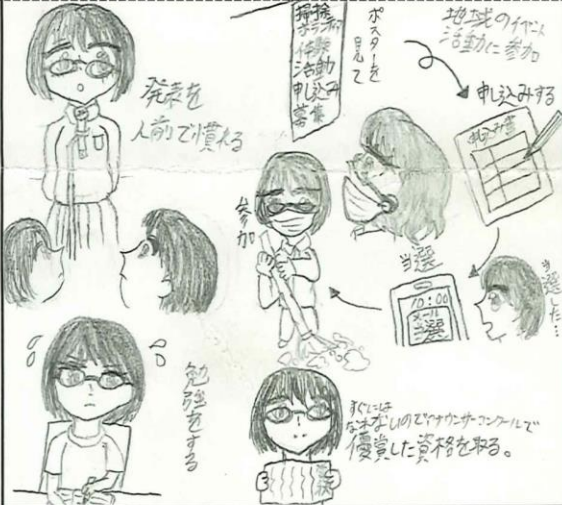 発表を
人前で慣れる
掃除
ボランティア
体験
活動
申し込み
募集
ポスターを
見て
地域のイベント
活動に参加
申し込みする
申込み書
当選
10:00
メール
当選
当選した…
参加
勉強をする
すぐには
なれないのでアナウンサーコンクールで
優賞した資格を取る。